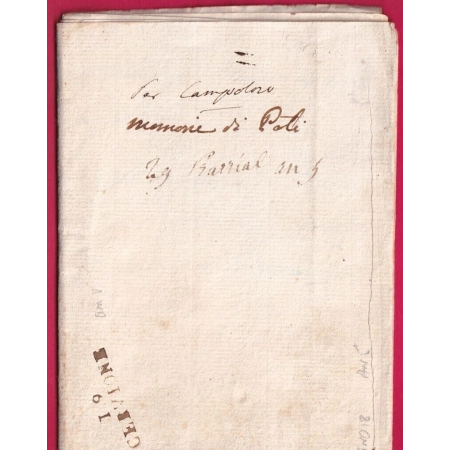 Per Campoloro
memorie di Poli
29 Prairial an 5
19
CERVIONE
AN 5